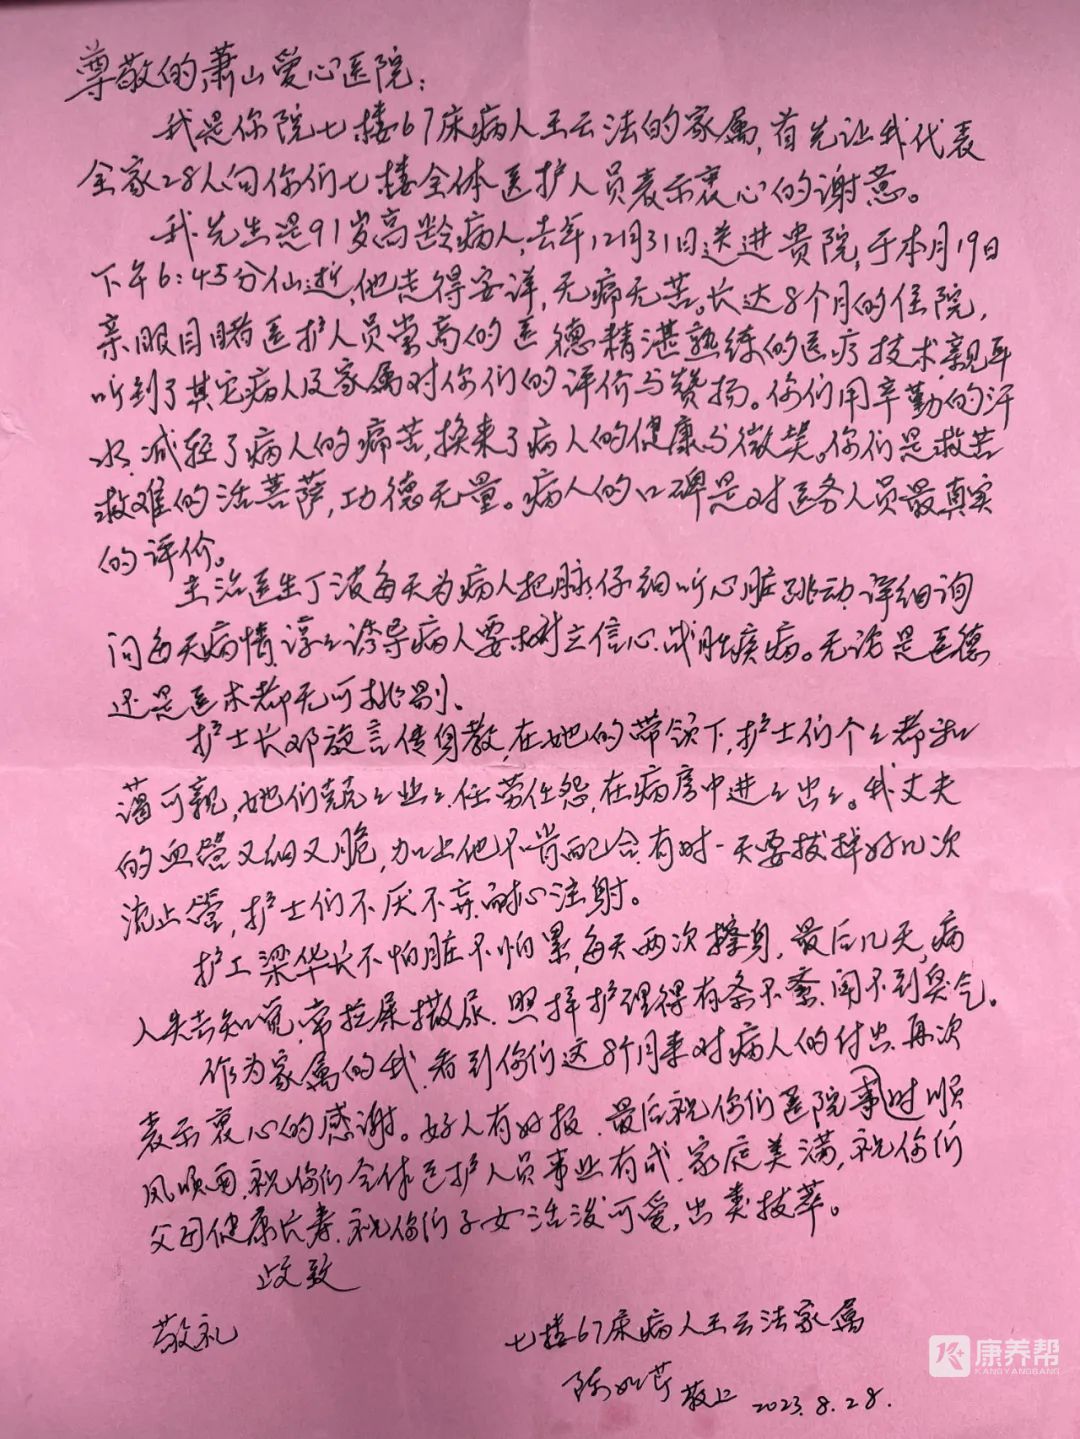 尊敬的萧山爱心医院：
我是你院七楼67床病人王云法的家属，首先让我代表
全家28人向你们七楼全体医护人员表示衷心的谢意。
我先生是91岁高龄病人，去年12月31日送进贵院，于本月19日
下午6:45分仙逝，他走得安详，无痛无苦。长达8个月的住院，
亲眼目睹医护人员崇高的医德精湛熟练的医疗技术，亲耳
听到了其它病人及家属对你们的评价与赞扬。你们用辛勤的汗
水，减轻了病人的痛苦，换来了病人的健康与微笑。你们是救苦
救难的活菩萨，功德无量。病人的口碑是对医务人员最真实
的评价。
主治医生丁波每天为病人把脉，仔细听心脏跳动，详细询
问每天病情，谆々诱导病人要树立信心、战胜疾病。无论是医德
还是医术都无可挑剔、
护士长邓旋言传身教，在她的带领下，护士们个々都和
蔼可亲，她们兢々业々、任劳任怨，在病房中进々出々。我丈夫
的血管又细又脆，加上他不肯配合，有时一天要拔掉好几次
流止管，护士们不厌不弃，耐心注射。
护工梁华长不怕脏不怕累，每天两次擦身，最后几天，病
人失去知觉，常拉屎撒尿，照样护理得有条不紊，闻不到臭气。
作为家属的我，看到你们这8个月来对病人的付出，再次
表示衷心的感谢。好人有好报，最后祝你们医院事时顺
风顺雨，祝你们全体医护人员事业有成，家庭美满，祝你们
父母健康长寿，祝你们子女活泼可爱，出类拔萃。
此致
敬礼
七楼67床病人王云法家属
敬上 2023.8.28.
康养帮
KANGYANGBANG